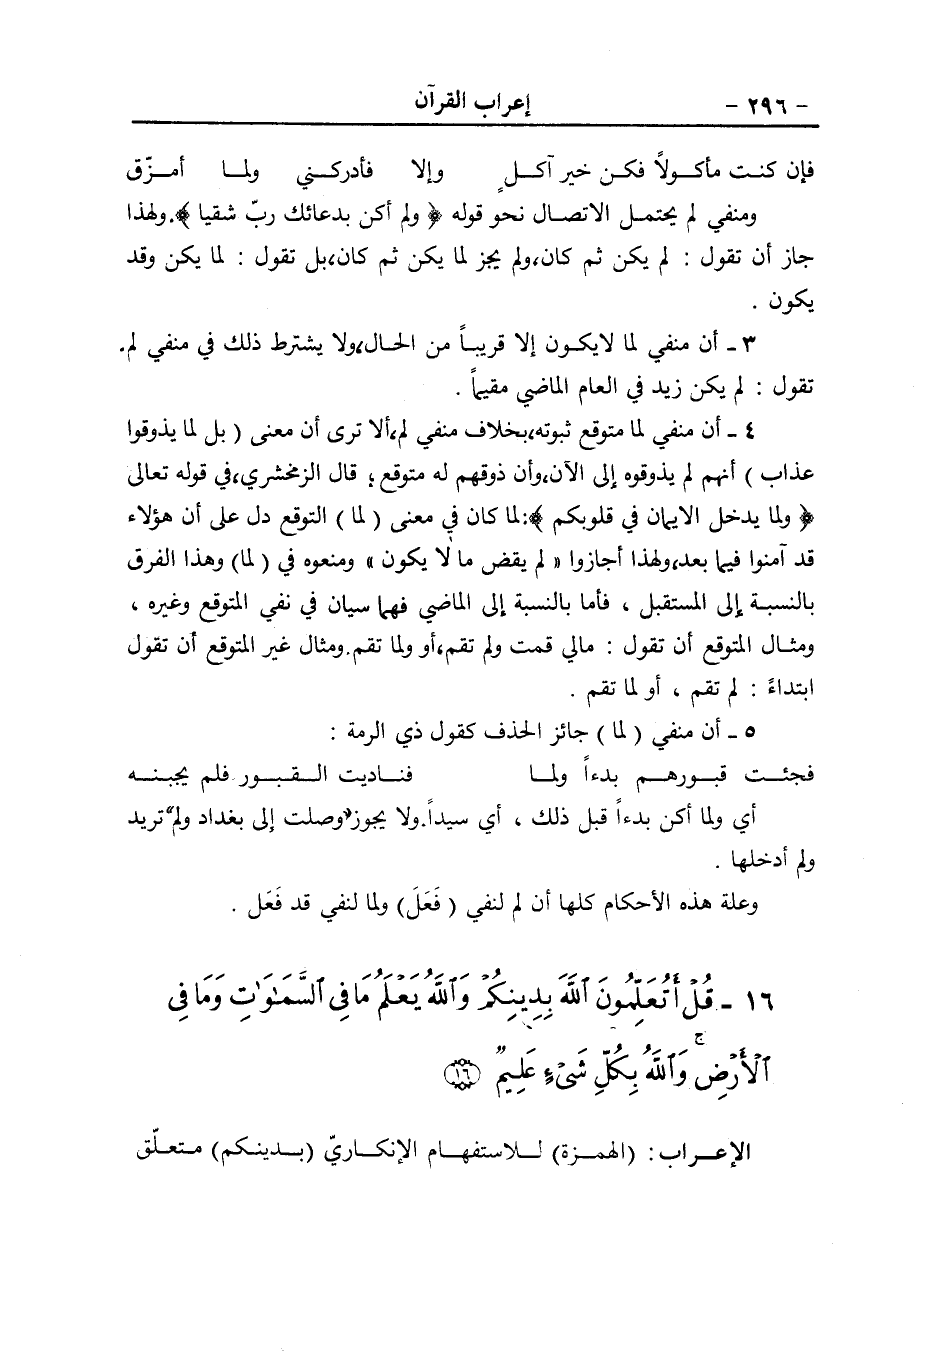 - ٢٩٦ - إعراب القرآن
فإن كنت مأكولاً فكن خير آكلٍ وإلا فأدركني ولما أمزّق
ومنفي لم يحتمل الاتصال نحو قوله ﴿ ولم أكن بدعائك ربّ شقيا ﴾. ولهذا
جاز أن تقول : لم يكن ثم كان، ولم يجز لما يكن ثم كان، بل تقول : لما يكن وقد
يكون .
٣ - أن منفي لما لايكون إلا قريباً من الحال، ولا يشترط ذلك في منفي لم.
تقول : لم يكن زيد في العام الماضي مقيماً .
٤ - أن منفي لما متوقع ثبوته، بخلاف منفي لم، ألا ترى أن معنى ( بل لما يذوقوا
عذاب ) أنهم لم يذوقوه إلى الآن، وأن ذوقهم له متوقع ؛ قال الزمخشري، في قوله تعالى
﴿ ولما يدخل الايمان في قلوبكم ﴾: لما كان في معنى ( لما ) التوقع دل على أن هؤلاء
قد آمنوا فيما بعد، ولهذا أجازوا « لم يقض ما لا يكون » ومنعوه في ( لما) وهذا الفرق
بالنسبة إلى المستقبل ، فأما بالنسبة إلى الماضي فهما سيان في نفي المتوقع وغيره ،
ومثال المتوقع أن تقول : مالي قمت ولم تقم، أو ولما تقم. ومثال غير المتوقع أن تقول
ابتداءً : لم تقم ، أو لما تقم .
٥ - أن منفي ( لما ) جائز الحذف كقول ذي الرمة :
فجئت قبورهم بدءاً ولما فناديت القبور فلم يجبنه
أي ولما أكن بدءاً قبل ذلك ، أي سيداً. ولا يجوز «وصلت إلى بغداد ولم» تريد
ولم أدخلها .
وعلة هذه الأحكام كلها أن لم لنفي ( فَعَلَ) ولما لنفي قد فَعَل .
١٦ - قُلْ أَتُعَلِّمُونَ ٱللَّهَ بِدِينِكُمْ وَٱللَّهُ يَعْلَمُ مَا فِى ٱلسَّمَٰوَٰتِ وَمَا فِى
ٱلْأَرْضِ ۚ وَٱللَّهُ بِكُلِّ شَىْءٍ عَلِيمٌ ١٦
الإعراب : (الهمزة) للاستفهام الإنكاريّ (بدينكم) متعلّق